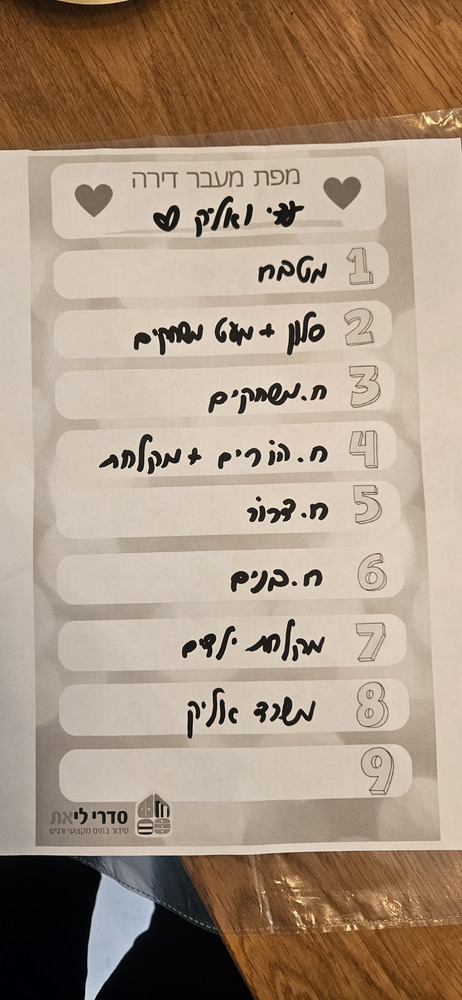 מפת מעבר דירה
עדי ואליק ♡
1 מטבח
2 סלון + מעט משחקים
3 ח.משחקים
4 ח.הורים + מקלחת
5 ח.דרור
6 ח.בנים
7 מקלחת ילדים
8 משרד אליק
9
סדרי ליאת
סידור בתים מקצועי ורגיש